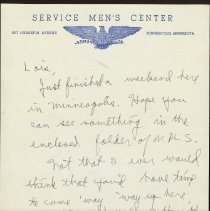 SERVICE MEN'S CENTER
HENNEPIN AVENUE
MINNEAPOLIS, MINNESOTA
Lois,
Just finished a weekend here
in Minneapolis. Hope you
can see something in the
enclosed folder of MPLS.
Not that I ever would
think that you'd have time
to come 'way 'way up here